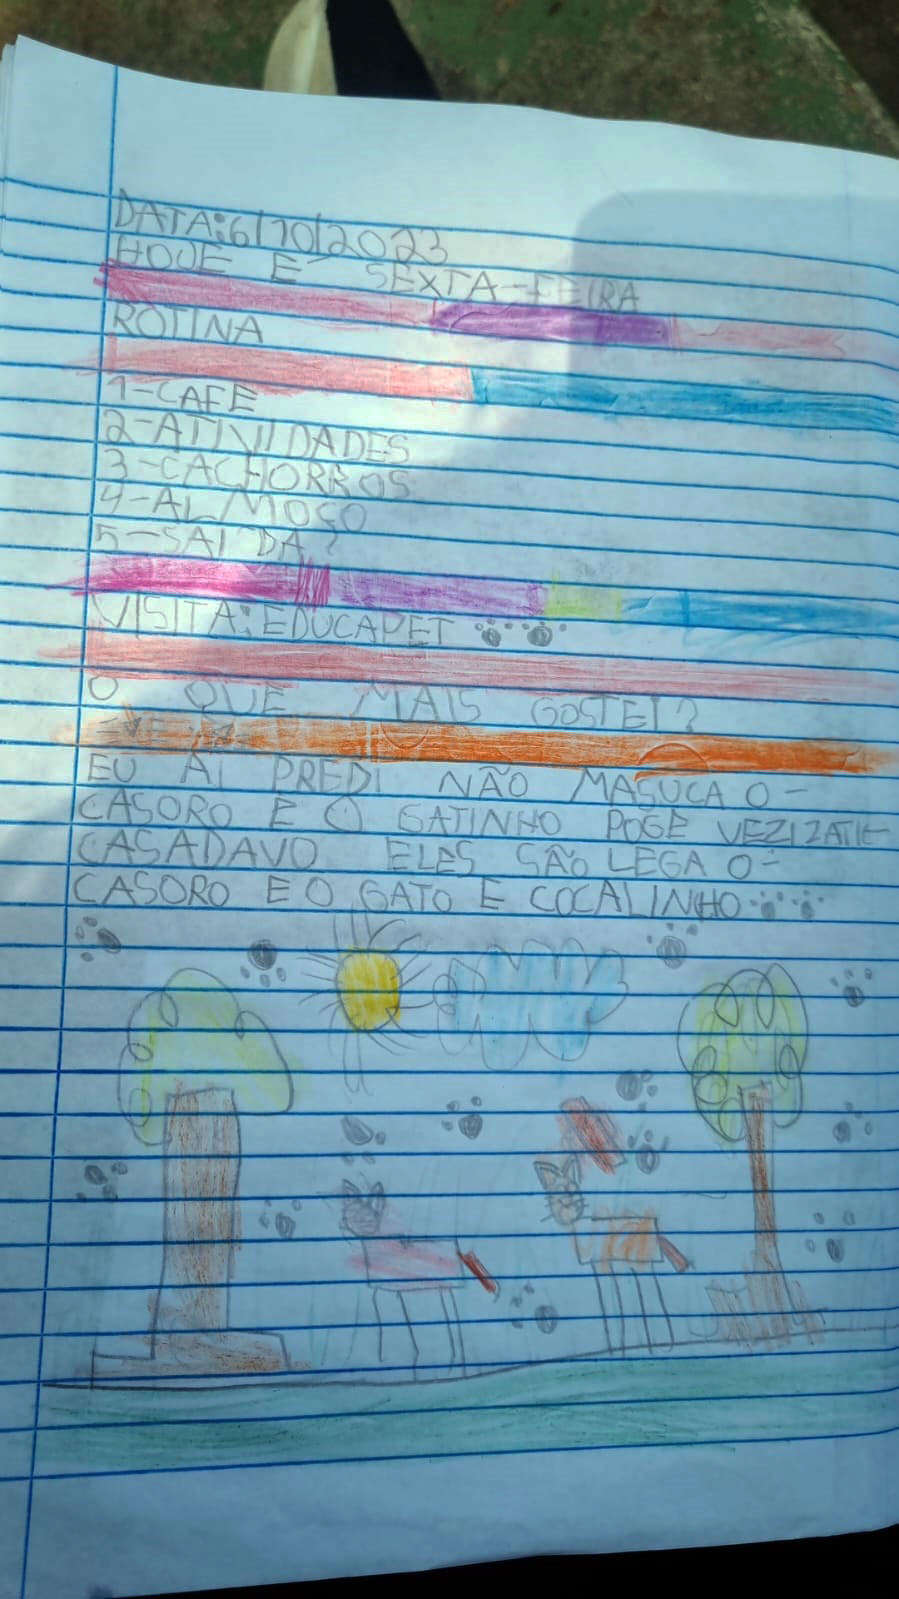 DATA:6/10/2023
HOJE E SEXTA-FEIRA
ROTINA
1-CAFE
2-ATIVIDADES
3-CACHORROS
4-ALMOÇO
5-SAIDA?
VISITA: EDUCAPET
O QUE MAIS GOSTEI?
EU AI PREDI NÃO MASUCA O-
CASORO E O GATINHO POGE VEZIZATIE
CASADAVO ELES SÃO LEGA O-
CASORO E O GATO E COCALINHO